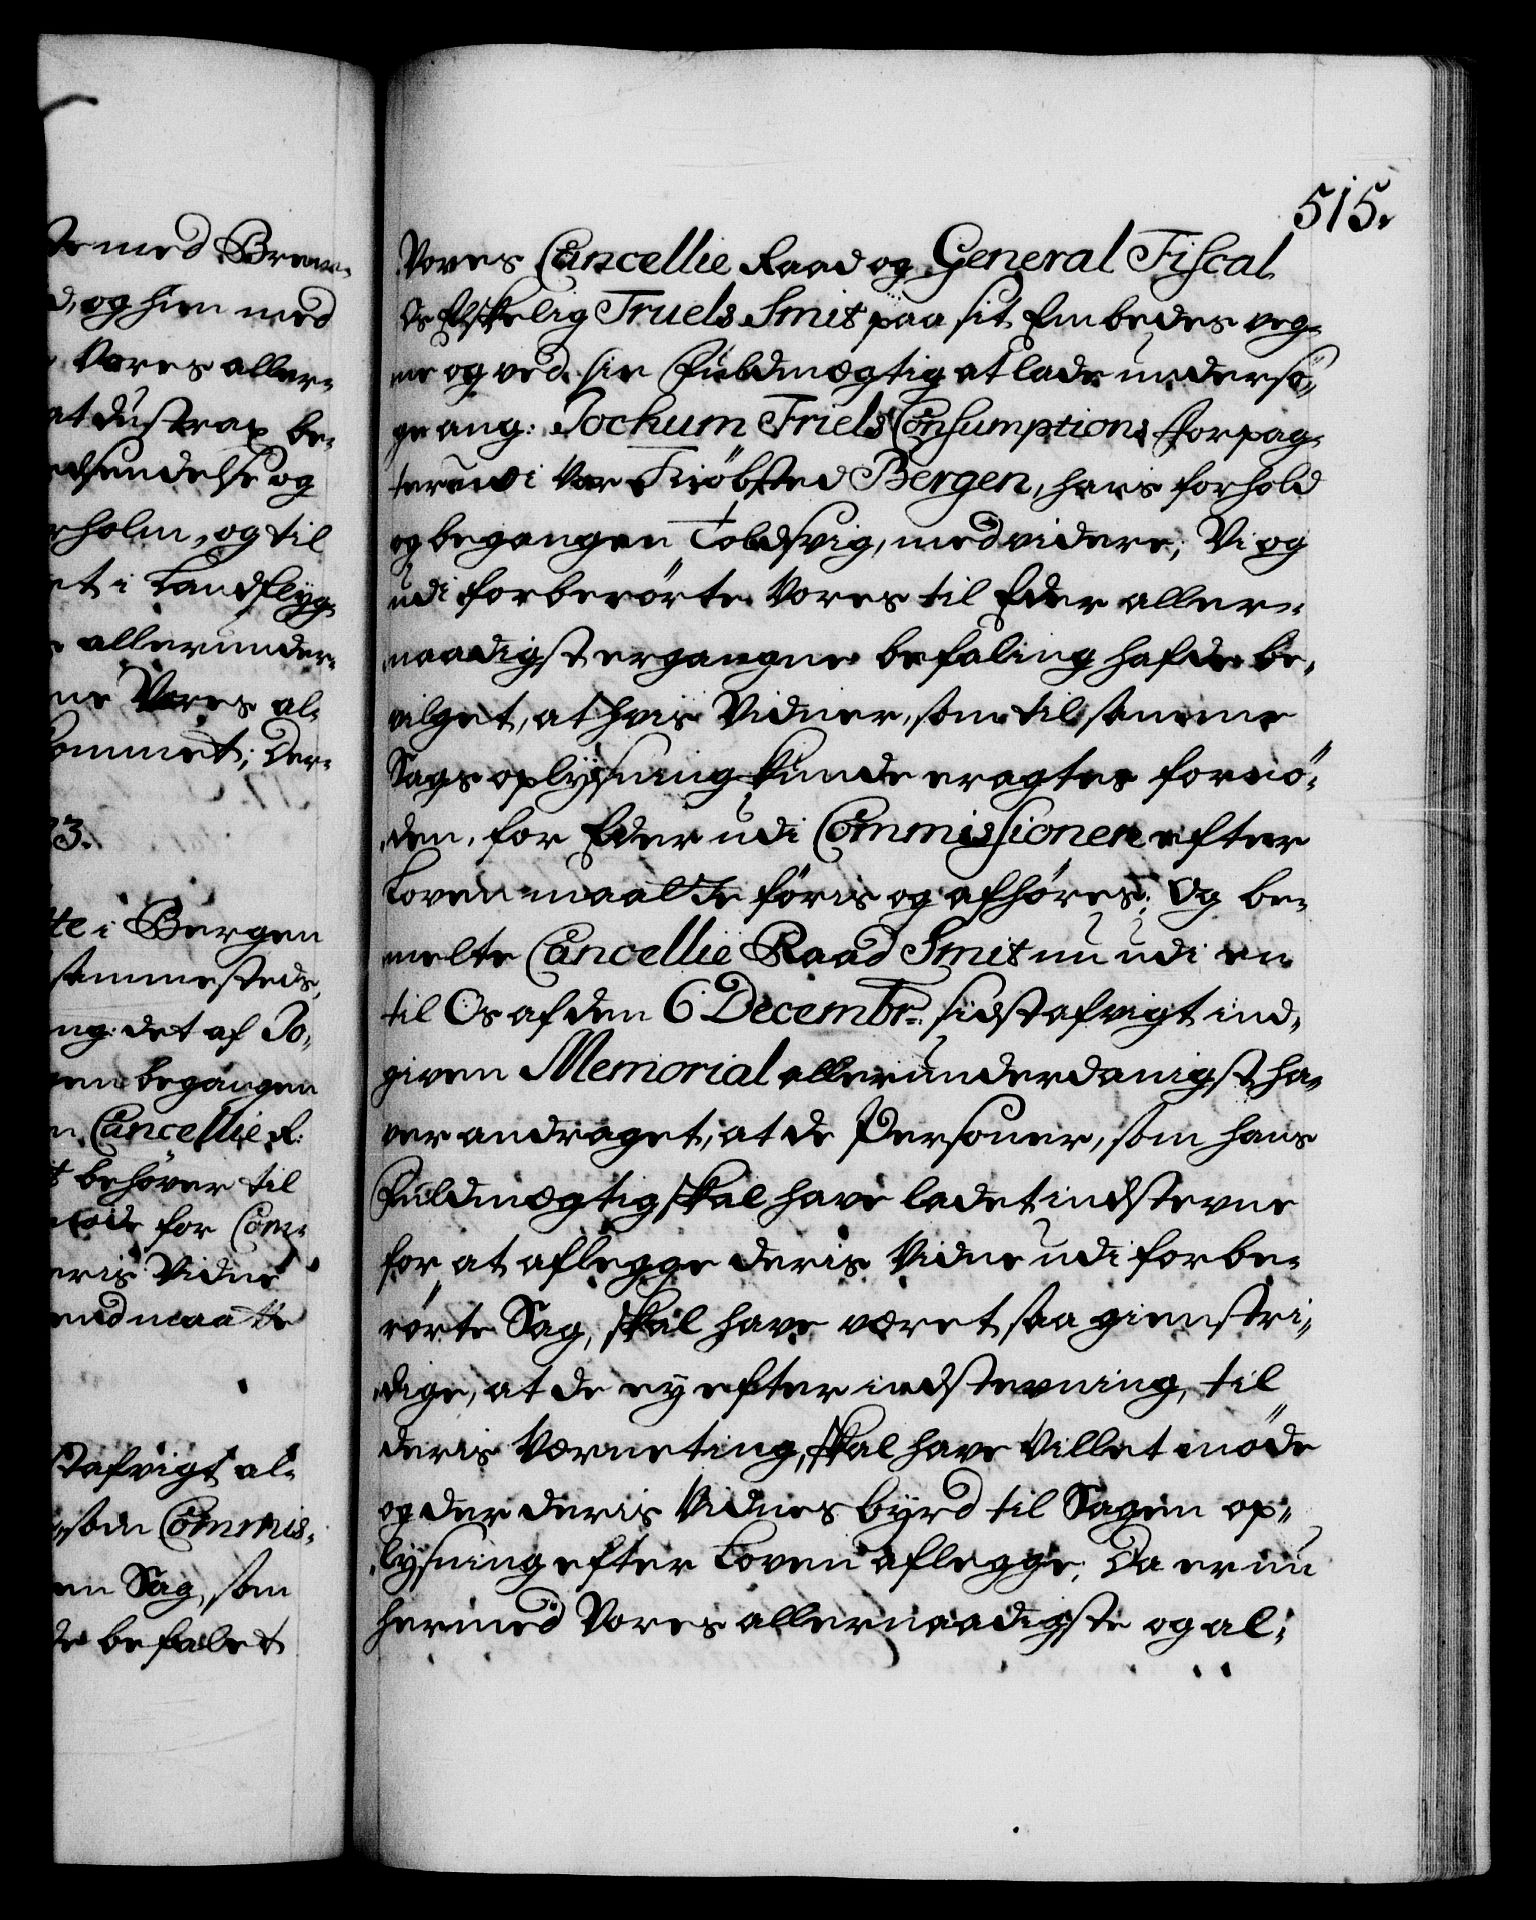 te med Brem-
d, og hien med
Vores aller-
at dustrax be-
edsendelse og
rholm, og til
et i Landflyg-
allerunder-
ne Vores al-
kommet; Der-
73.
te i Bergen
sammesteds,
ng: det af Jo-
gen begangen
n Cancellie R:
t behøver til
møde for Com-
eris Vidne
end maatte
stafvigt al-
som Commis-
en Sag, som
de befalet
515.
Vores Cancellie Raad og General Fiscal
Os Elskelig Truels Smit paa sit Embedes veg-
ne og ved sin Fuldmægtig at lade undersø-
ge ang: Jochum Friels Consumptions Forpag-
ter udi Vor Kiøbsted Bergen, hans forhold
og begangen Toldsvig, med videre; Vi og
udi forberørte Vores til Eder aller-
naadigst ergangne befaling hafde be-
vilget, at hvis Vidner, som til samme
Sags oplysning kunde eragtes fornø-
den, for Eder udi Commissionen efter
Loven maatte føris og afhøres; Og be-
melte Cancellie Raad Smit nu udi en
til Os af den 6 Decembr. sidstafvigt ind-
given Memorial allerunderdanigst ha-
ver andraget, at de Personer, som hans
Fuldmægtig skal have ladet indstevne
for at aflegge deris Vidne udi forbe-
rørte Sag, skal have været saa gienstri-
dige, at de ey efter indstevning, til
deris Værneting, skal have villet møde
og der deris Vidnesbyrd til Sagen op-
lysning efter Loven aflegge; Da er nu
hermed Vores allernaadigste og al-